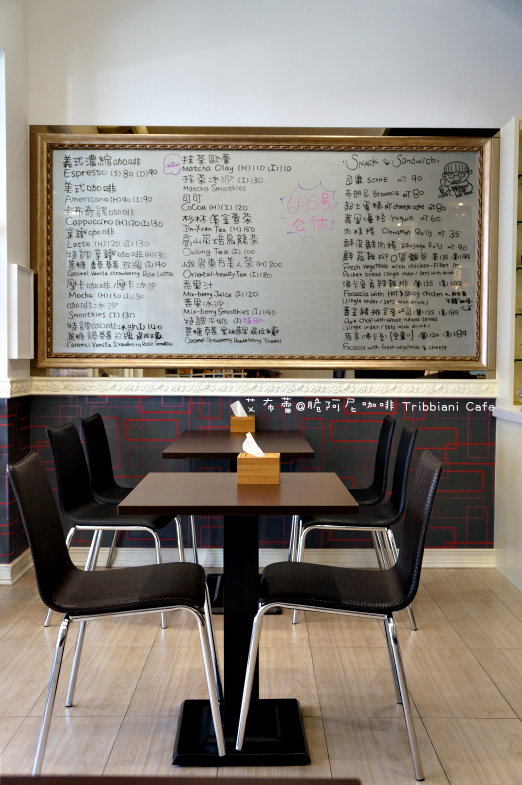 義式濃縮咖啡
Espresso (S) 80 (D) 90
美式咖啡
Americano (H) 90 (I) 90
卡布奇諾咖啡
Cappuccino (H) 120 (I) 130
拿鐵咖啡
Latte (H) 120 (I) 130
特調拿鐵咖啡 (H) 130
焦糖 香草 玫瑰 (I) 140
Caramel Vanilla Strawberry Rose Latte
摩卡咖啡/摩卡冰沙
Mocha (H) 130 (I) 150
咖啡冰沙
Smoothies (I) 130
特調咖啡冰沙 (I) 140
Caramel Vanilla Strawberry Rose Smoothie
NEW
抹茶歐蕾
Matcha Olay (H) 110 (I) 110
抹茶冰沙 (I) 130
Mascha Smoothies
可可
CoCoa (H) 120 (I) 120
杉林溪金萱茶
Jin-Xuan Tea (H) 150
高山凍培烏龍茶
Oolong Tea (I) 100
峨眉東方美人茶 (H) 200
Oriental-beauty Tea (I) 180
莓果汁
Mix-berry Juice (I) 120
莓果冰沙
Mix-berry Smoothies (I) 140
特調牛奶
Caramel Strawberry Rose
6月5號
公休
Snack & Sandwich
司康 SCONE NT 90
布朗尼 Brownie NT 80
cheese cake NT 80
Yogurt NT 60
肉桂捲 Cinnamon Rolls NT 35
Sausage Rolls NT 90
Fresh Vegetable with chicken fillet in
Pocket Bread (single order / sets with drink)
Focaccia with HOT & Spicy chicken
(single order / sets with drink)
Pork chop with whole wheat bread
(single order / sets with drink)
Focaccia with fresh vegetable & cheese
艾布蕾@脆阿尼咖啡 Tribbiani Cafe